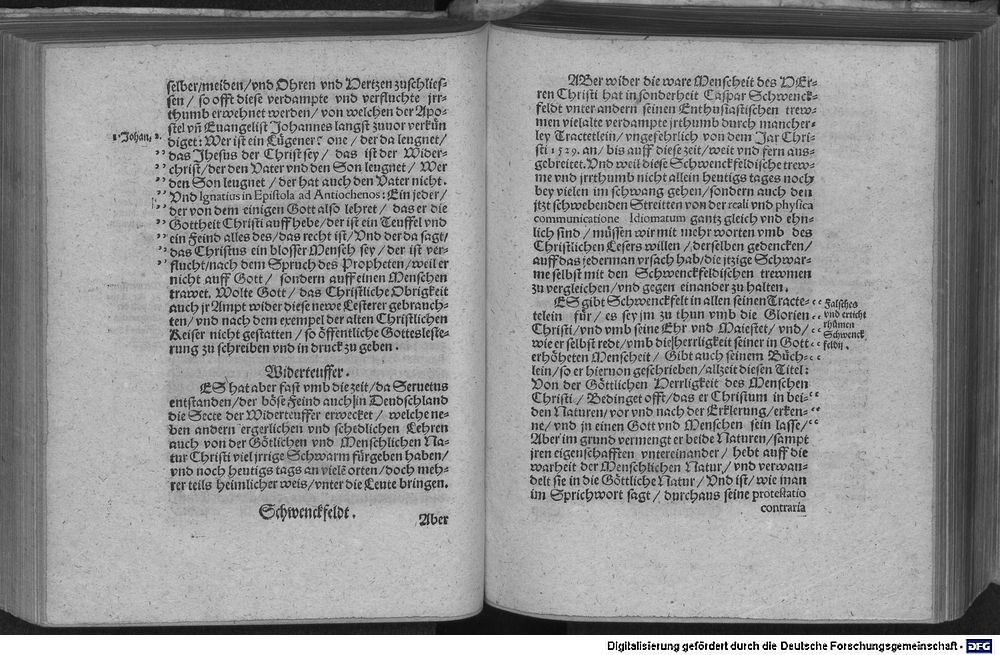 selber/meiden/vnd Ohren vnd Hertzen zuschlies-
sen / so offt diese verdampte vnd verfluchte jrr-
thumb erwehnet werden/ von welchen der Apo-
stel vñ Euangelist Johannes langst zuuor verkün
1. Johan. 2.
diget: Wer ist ein Lügener? one / der da leugnet/
das Jhesus der Christ sey / das ist der Wider-
christ/der den Vater vnd den Son leugnet / Wer
den Son leugnet / der hat auch den Vater nicht.
Vnd Ignatius in Epistola ad Antiochenos: Ein jeder/
der von dem einigen Gott also lehret / das er die
Gottheit Christi auff hebe/der ist ein Teuffel vnd
ein Feind alles des/das recht ist/Vnd der da sagt/
das Christus ein blosser Mensch sey / der ist ver-
flucht/nach dem Spruch des Propheten/weil er
nicht auff Gott / sondern auff einen Menschen
trawet. Wolte Gott / das Christliche Obrigkeit
auch jr Ampt wider diese newe Lesterer gebrauch-
ten/vnd nach dem exempel der alten Christlichen
Keiser nicht gestatten / so öffentliche Gotteslestè-
rung zu schreiben vnd in druck zu geben.
Widerteuffer.
ES hat aber fast vmb die zeit/da Seruetus
entstanden/der böse Feind auch in Deudschland
die Secte der Widerteuffer erwecket / welche ne-
ben andern ergerlichen vnd schedlichen Lehren
auch von der Götlichen vnd Menschlichen Na-
tur Christi viel jrrige Schwarm fürgeben haben/
vnd noch heutigs tags an vielē orten/doch meh-
rer teils heimlicher weis/vnter die Leute bringen.
Schwenckfeldt.
Aber
ABer wider die ware Menscheit des HEr-
ren Christi hat in sonderheit Caspar Schwenck-
feldt vnter andern seinen Enthusiastischen trew-
men vielalte verdampte jrthumb durch mancher-
ley Tractetlein/ vngefehrlich von dem Jar Chri-
sti 1529. an/ bis auff diese zeit/weit vnd fern aus-
gebreitet. Vnd weil diese Schwenckfeldische trew-
me vnd jrrthumb nicht allein heutigs tages noch
bey vielen im schwang gehen/sondern auch den
jtzt schwebenden Streitten von der reali vnd physica
communicatione Idiomatum gantz gleich vnd ehn-
lich sind / müssen wir mit mehr worten vmb des
Christlichen Lesers willen / derselben gedencken/
auff das jederman vrsach hab/die jtzige Schwar-
me selbst mit den Schwenckfeldischen trewmen
zu vergleichen/vnd gegen einander zu halten.
ES gibt Schwenckfelt in allen seinen Tracte-
telein für/ es sey jm zu thun vmb die Glorien
Christi/vnd vmb seine Ehr vnd Maiestet/ vnd/
wie er selbst redt/vmb die herrligkeit seiner in Gott
erhöheten Menscheit / Gibt auch seinem Büch-
lein/so er hieruon geschrieben/allzeit diesen Titel:
Von der Göttlichen Herrligkeit des Menschen
Christi / Bedinget offt/das er Christum in bei-
den Naturen/vor vnd nach der Erklerung/erken-
ne/ vnd jn einen Gott vnd Menschen sein lasse/
Aber im grund vermengt er beide Naturen/sampt
jren eigenschafften vntereinander / hebt auff die
warheit der Menschlichen Natur/ vnd verwan-
delt sie in die Göttliche Natur / Vnd ist/ wie man
im Sprichwort sagt / durchaus seine protestatio
contraria
Falsches
vnd erticht
rhümen
Schwenck
feldij.
Digitalisierung gefördert durch die Deutsche Forschungsgemeinschaft - DFG